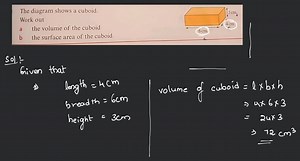 The diagram shows a cuboid.
Work out
a the volume of the cuboid
b the surface area of the cuboid.
Sol:-
Given that
length = 4cm
breadth = 6cm
height = 3cm
volume of cuboid = l x b x h
= 4 x 6 x 3
= 24 x 3
= 72 cm³